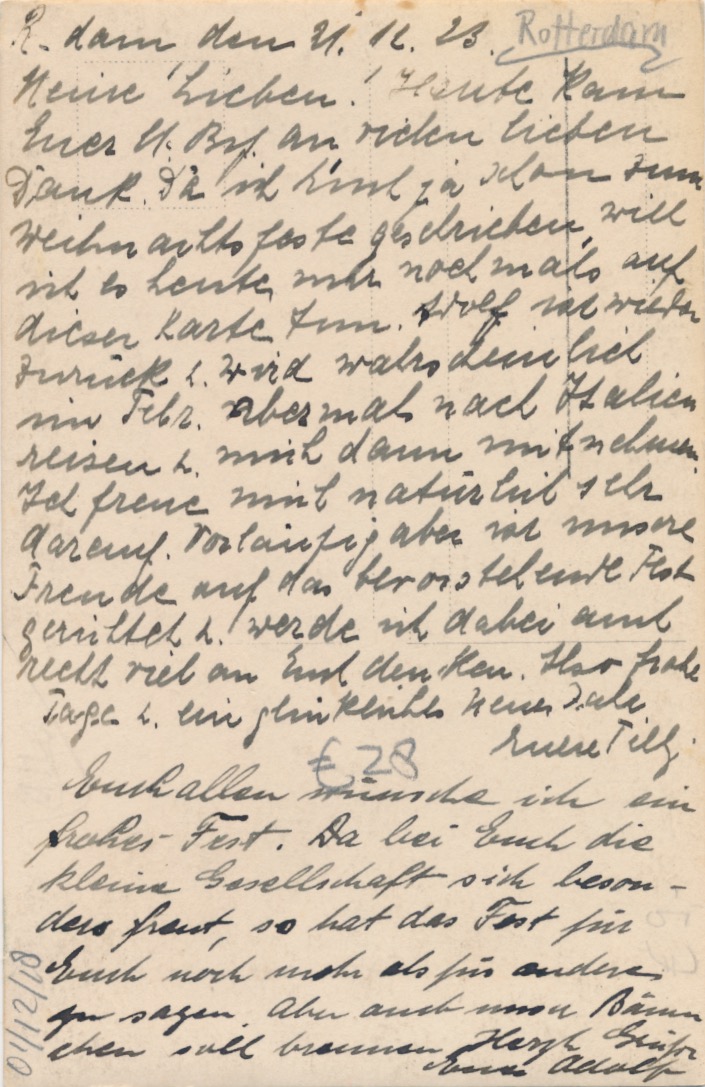 R-dam den 21. 12. 23. Rotterdam
Meine Lieben! Heute kam
Euer l. Brf. an vielen lieben
Dank. Da ich Euch ja schon zum
Weihnachtsfeste geschrieben, will
ich es heute nur nochmals auf
dieser Karte tun. Adolf ist wieder
zurück u. wird wahrscheinlich
im Febr. abermals nach Italien
reisen u. mich dann mitnehmen.
Ich freue mich natürlich sehr
darauf. Vorläufig aber ist unsere
Freude auf das bevorstehende Fest
gerichtet u. werde ich dabei auch
recht viel an Euch denken. Also frohe
Tage u. ein glückliches Neues Jahr
Euere Tilly.
€ 28
Euch allen wünsche ich ein
frohes Fest. Da bei Euch die
kleine Gesellschaft sich beson-
ders freut, so hat das Fest für
Euch noch mehr als für andere
zu sagen. Aber auch unser Bäum
chen soll brennen. Herzl. Grüße
Euer Adolf
01/12/18